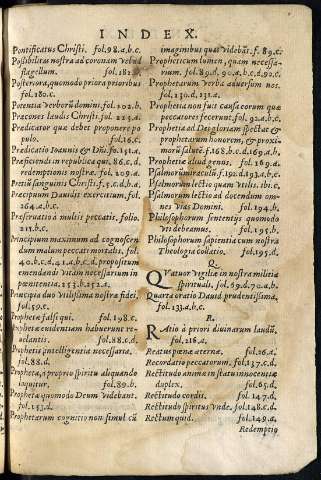 INDEX.
Pontificatus Christi. fol.98.a.b.c.
Possibilitas nostra ad coronam vel ad
flagellum. fol.182.
Posteriora, quomodo priora prioribus
fol.180.c.
Potentia verborũ domini. fol.102.b.
Præcones laudis Christi. fol.223.a.
Prædicator quæ debet proponere po
pulo. fol.36.c.
Prædicatio Ioannis & Dñi. fol.
Præficiendi in republica qui. 86.c.d
redemptionis nostræ. fol.209.a.
Pretiũ sanguinis Christi. f.5.c.d.b.a.
Præcipuum Dauidis exercitium. fol.
264.a.b.c.
Præseruatio à multis peccatis. folio.
211.b.c.
Principium maximum ad cognoscen
dum malum peccati mortalis. fol.
40.b.c.d.41.a.b.c.d. propositum
emendandi vitam necessarium in
pœnitentia. 253.b.252.a.
Principia duo vtilissima nostræ fidei.
fol.59.c.
Prophetæ falsi qui. fol.198.c.
Prophetæ euidentiam habuerunt re-
uelantis. fol.88.c.d.
Prophetis intelligentia necessaria.
fol.88.d.
Prophetæ, à proprio spiritu aliquando
loquútur. fol.89.b.
Prophetæ quomodo Deum videbant.
fol.153.d.
Prophetarum cognitio non simul cũ
imaginibus quas videbãt. f.89.c.
Propheticum lumen, quàm necessa-
rium. fol.89.d.90.a.b.c.d.92.c.
Prophetarum verba aduersum nos.
fol.130.d.131.a.
Prophetia non fuit causa eorum quæ
peccatores fecerunt. fol.92.a.b.c.
Prophetia ad Dei gloriam spectat &
prophetarum honorem, & proxi-
morũ salutẽ. f.168.b.c.d.169.a.b.
Prophetiæ aliud genus. fol.169.a.
Psalmorũ miracula. f.192.d.193.a.b.c.
Psalmorũ lectio quàm vtilis. ibi.c.
Psalmorum lectio ad docendum om-
nes Via Domini. fol.194.b.
Philosophorum sententijs quomodo
vti debeamus. fol.195.b.
Philosophorum sapientia cum nostra
Theologia collatio. fol.195.d.
Q.
QVatuor vigiliæ in nostra militia
spirituali. fol.69.d.70.a.b.
Quarta oratio Dauid prudentissima.
fol.133.a.b.c.
R.
RAtio à priori diuinarum laudũ.
fol.216.a.
Reatus pœnæ æternæ. fol.26.a.
Recordatio peccatorum. fol.137.c.d.
Rectitudo animæ in statu innocentiæ
duplex. fol.65.d.
Rectitudo cordis. fol.147.d.
Rectitudo spiritus vnde. fol.148.c.d.
Rectum quid. fol.149.a.
Redemptio